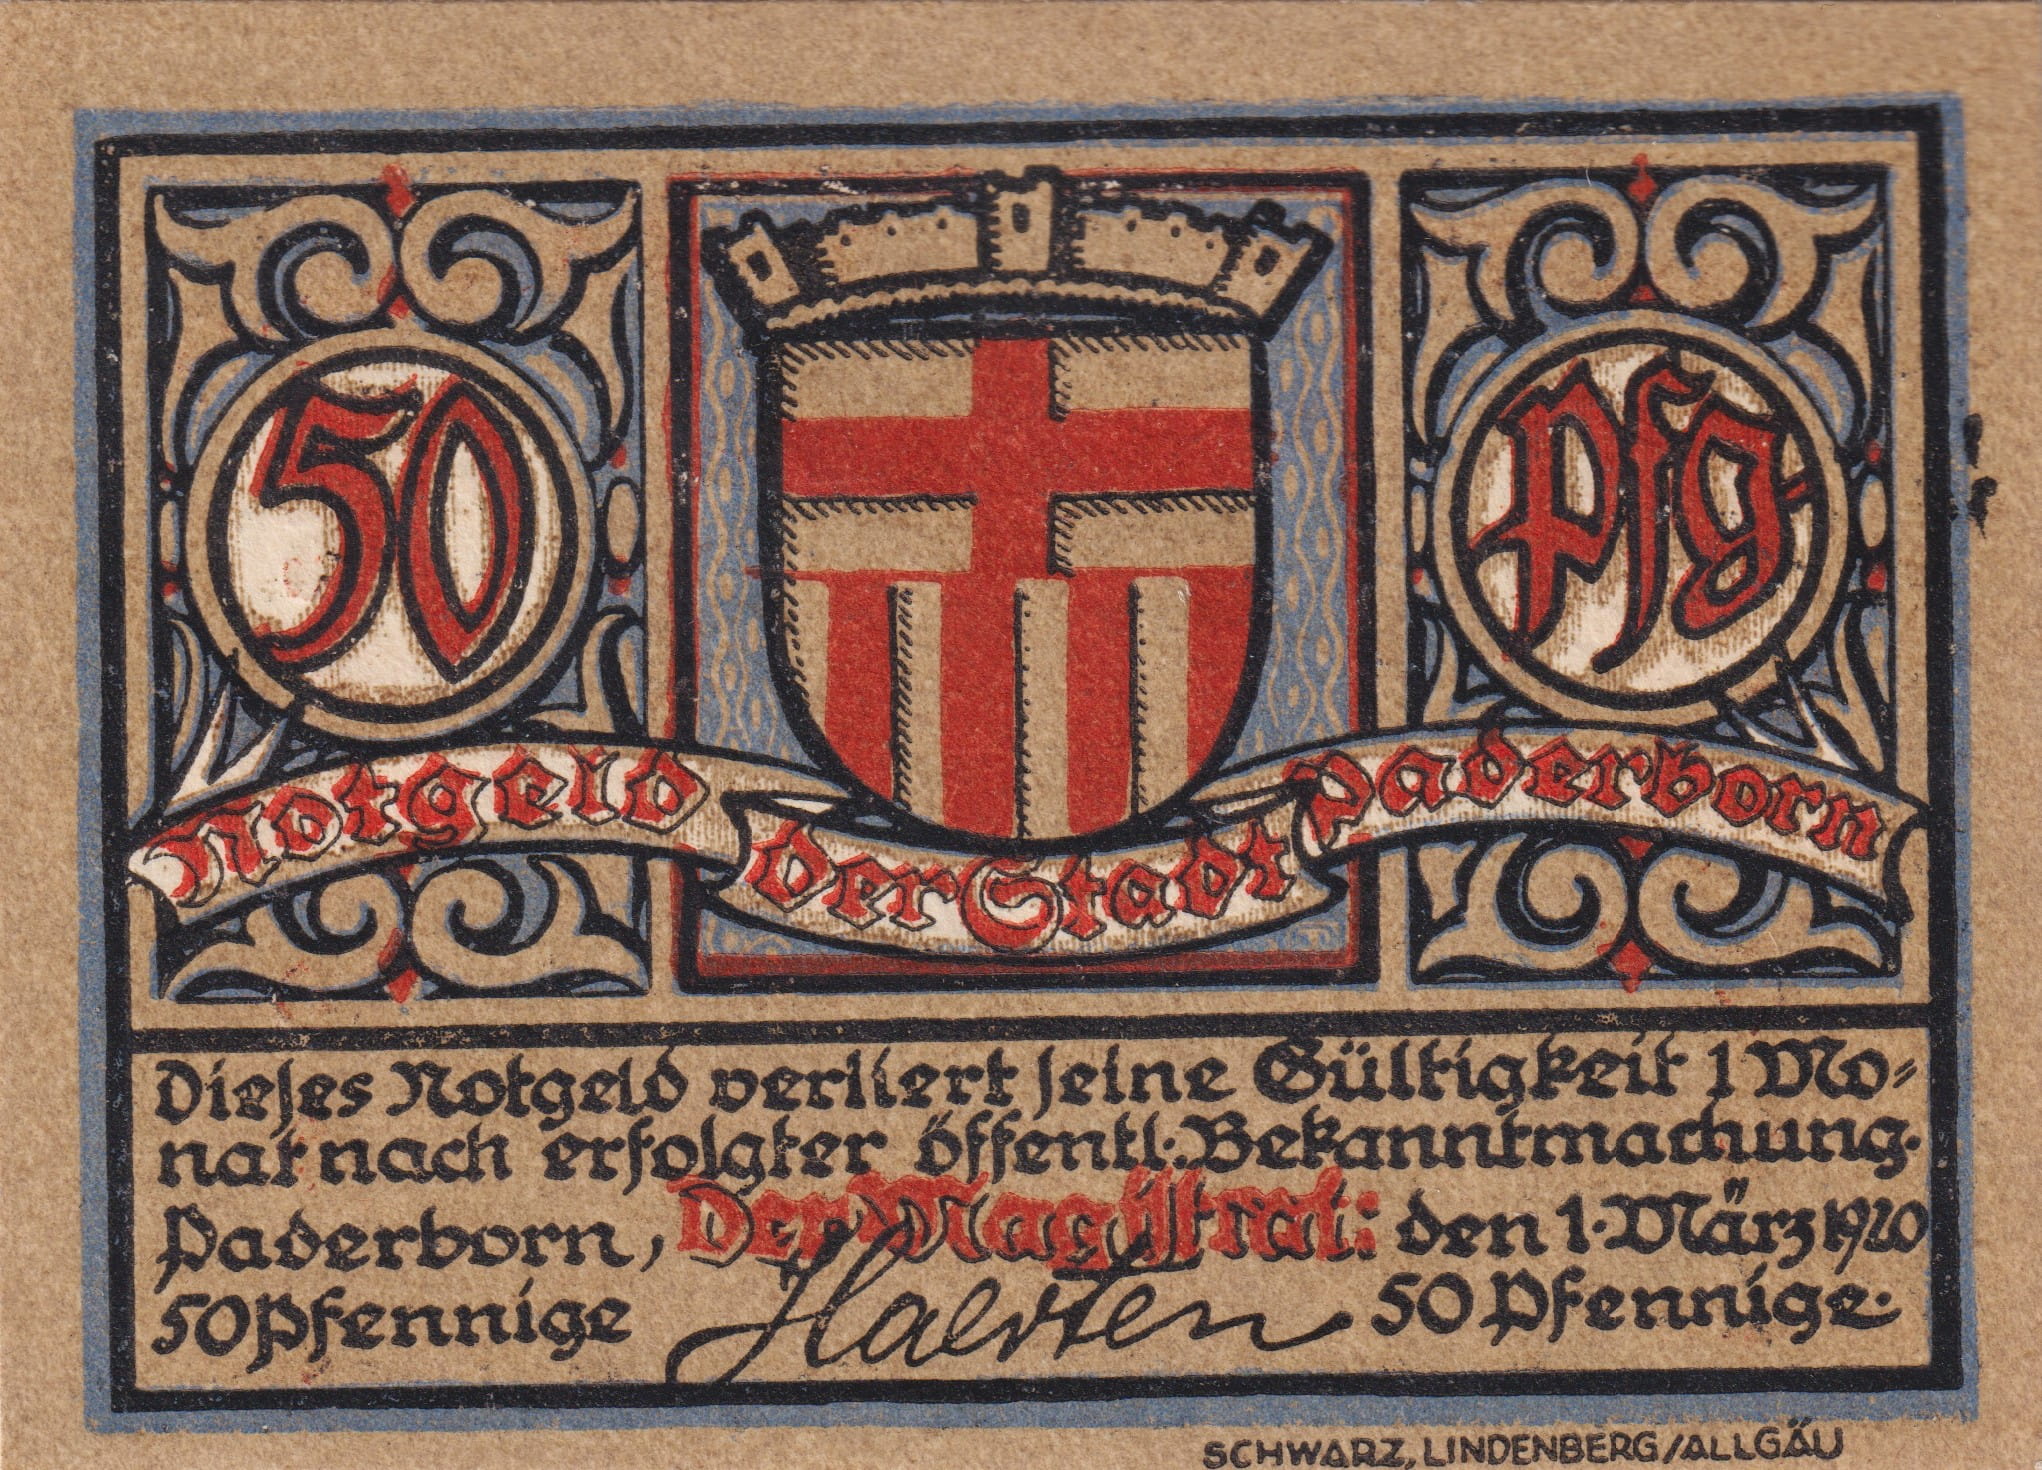 50
Pfg
Notgeld der Stadt Paderborn
Dieses Notgeld verliert seine Gültigkeit 1 Mo=
nat nach erfolgter öffentl. Bekanntmachung.
Paderborn, Der Magistrat: den 1. März 1920
50 Pfennige Haerten 50 Pfennige.
SCHWARZ, LINDENBERG/ALLGÄU